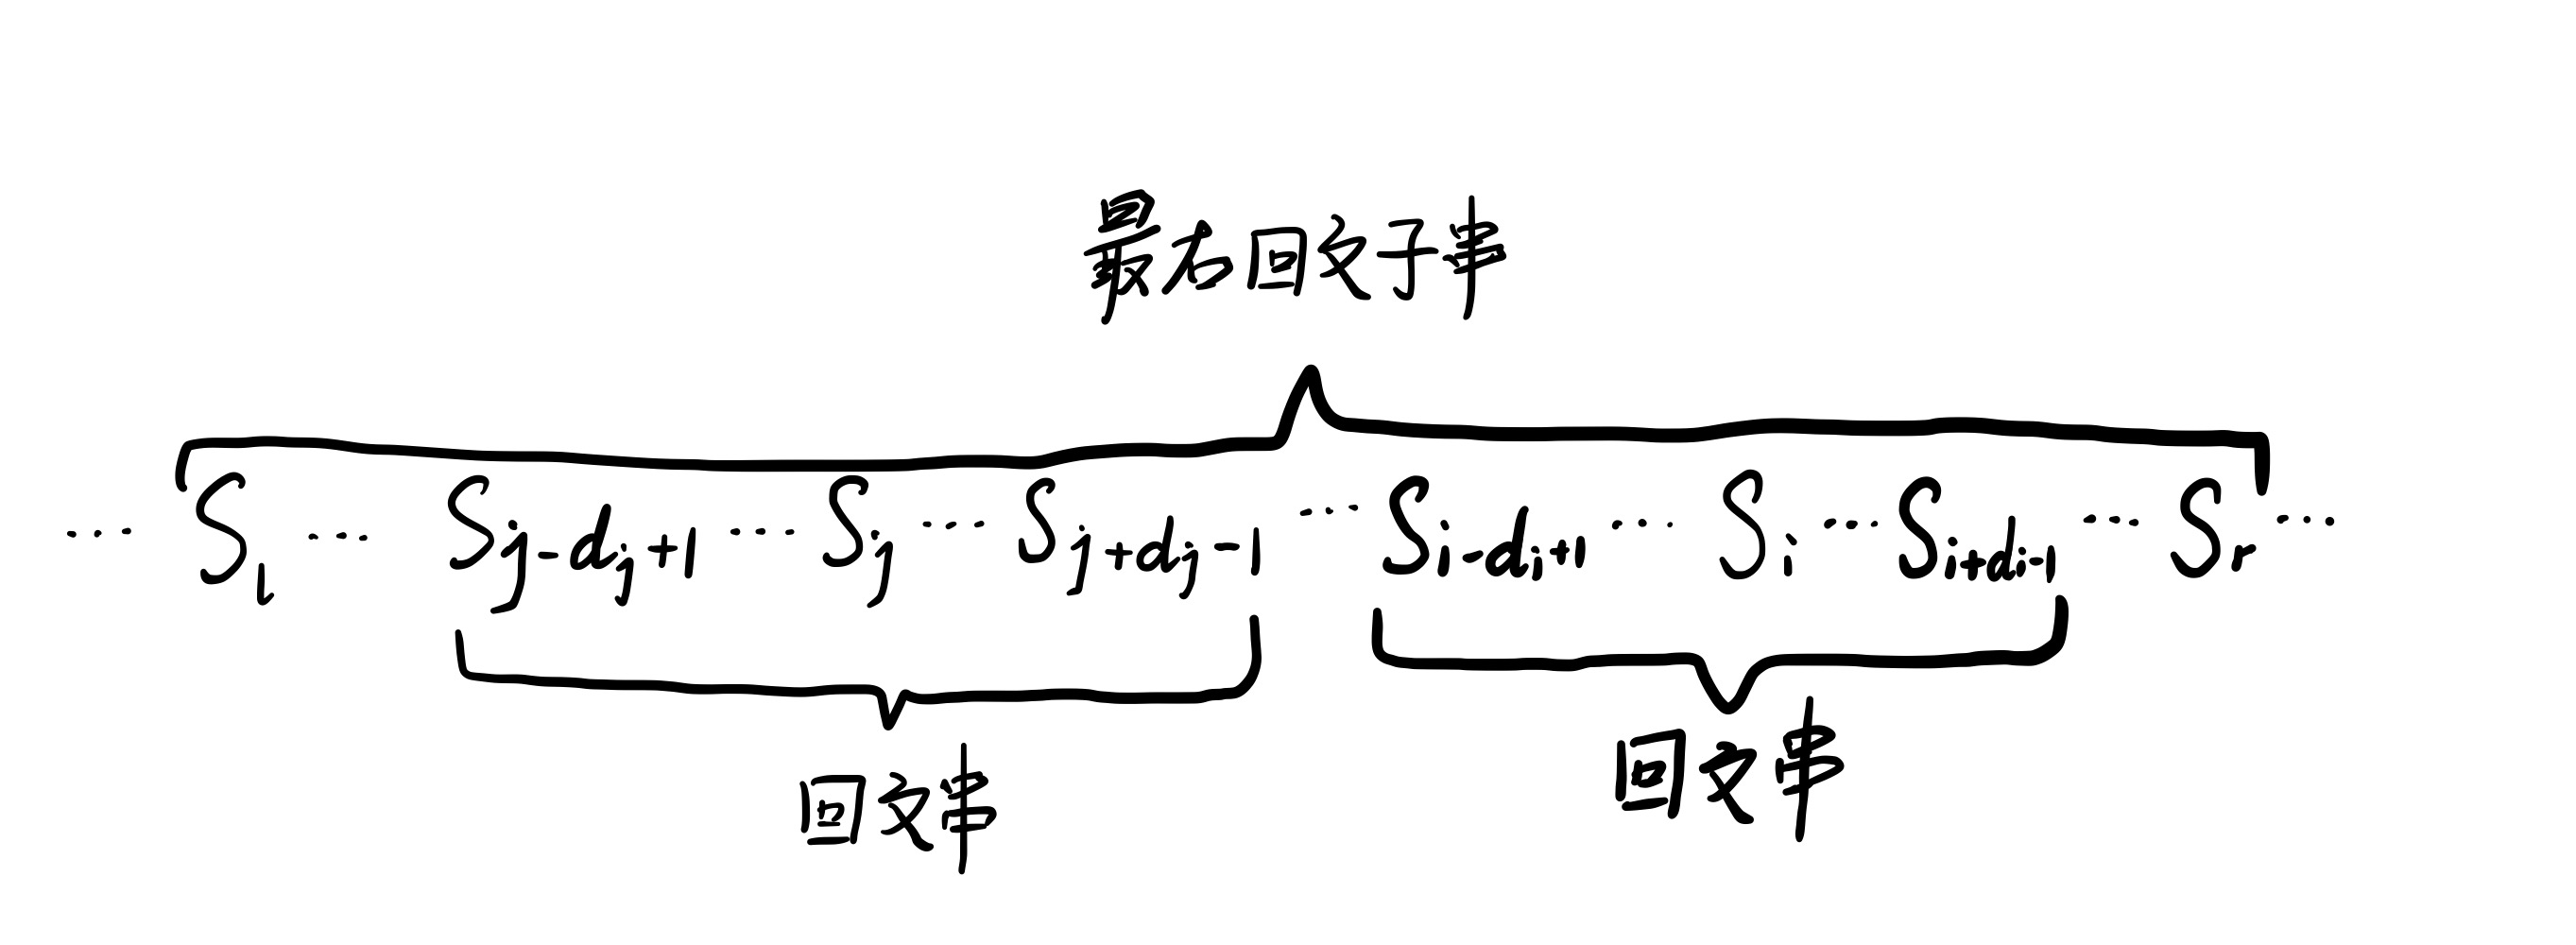 最右回文子串
… S_l … S_{j-d_j+1} … S_j … S_{j+d_j-1} … S_{i-d_i+1} … S_i … S_{i+d_i-1} … S_r …
回文串 回文串